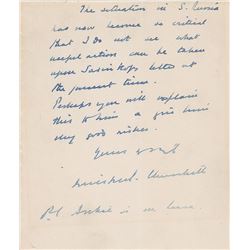 The situation in S. Russia
has now become so critical
that I do not see what
useful action can be taken
upon Savinkoff's letter at
the present time.
Perhaps you will explain
this to him & give him
my good wishes.
Yours
Winston S. Churchill
P.S. is on leave.